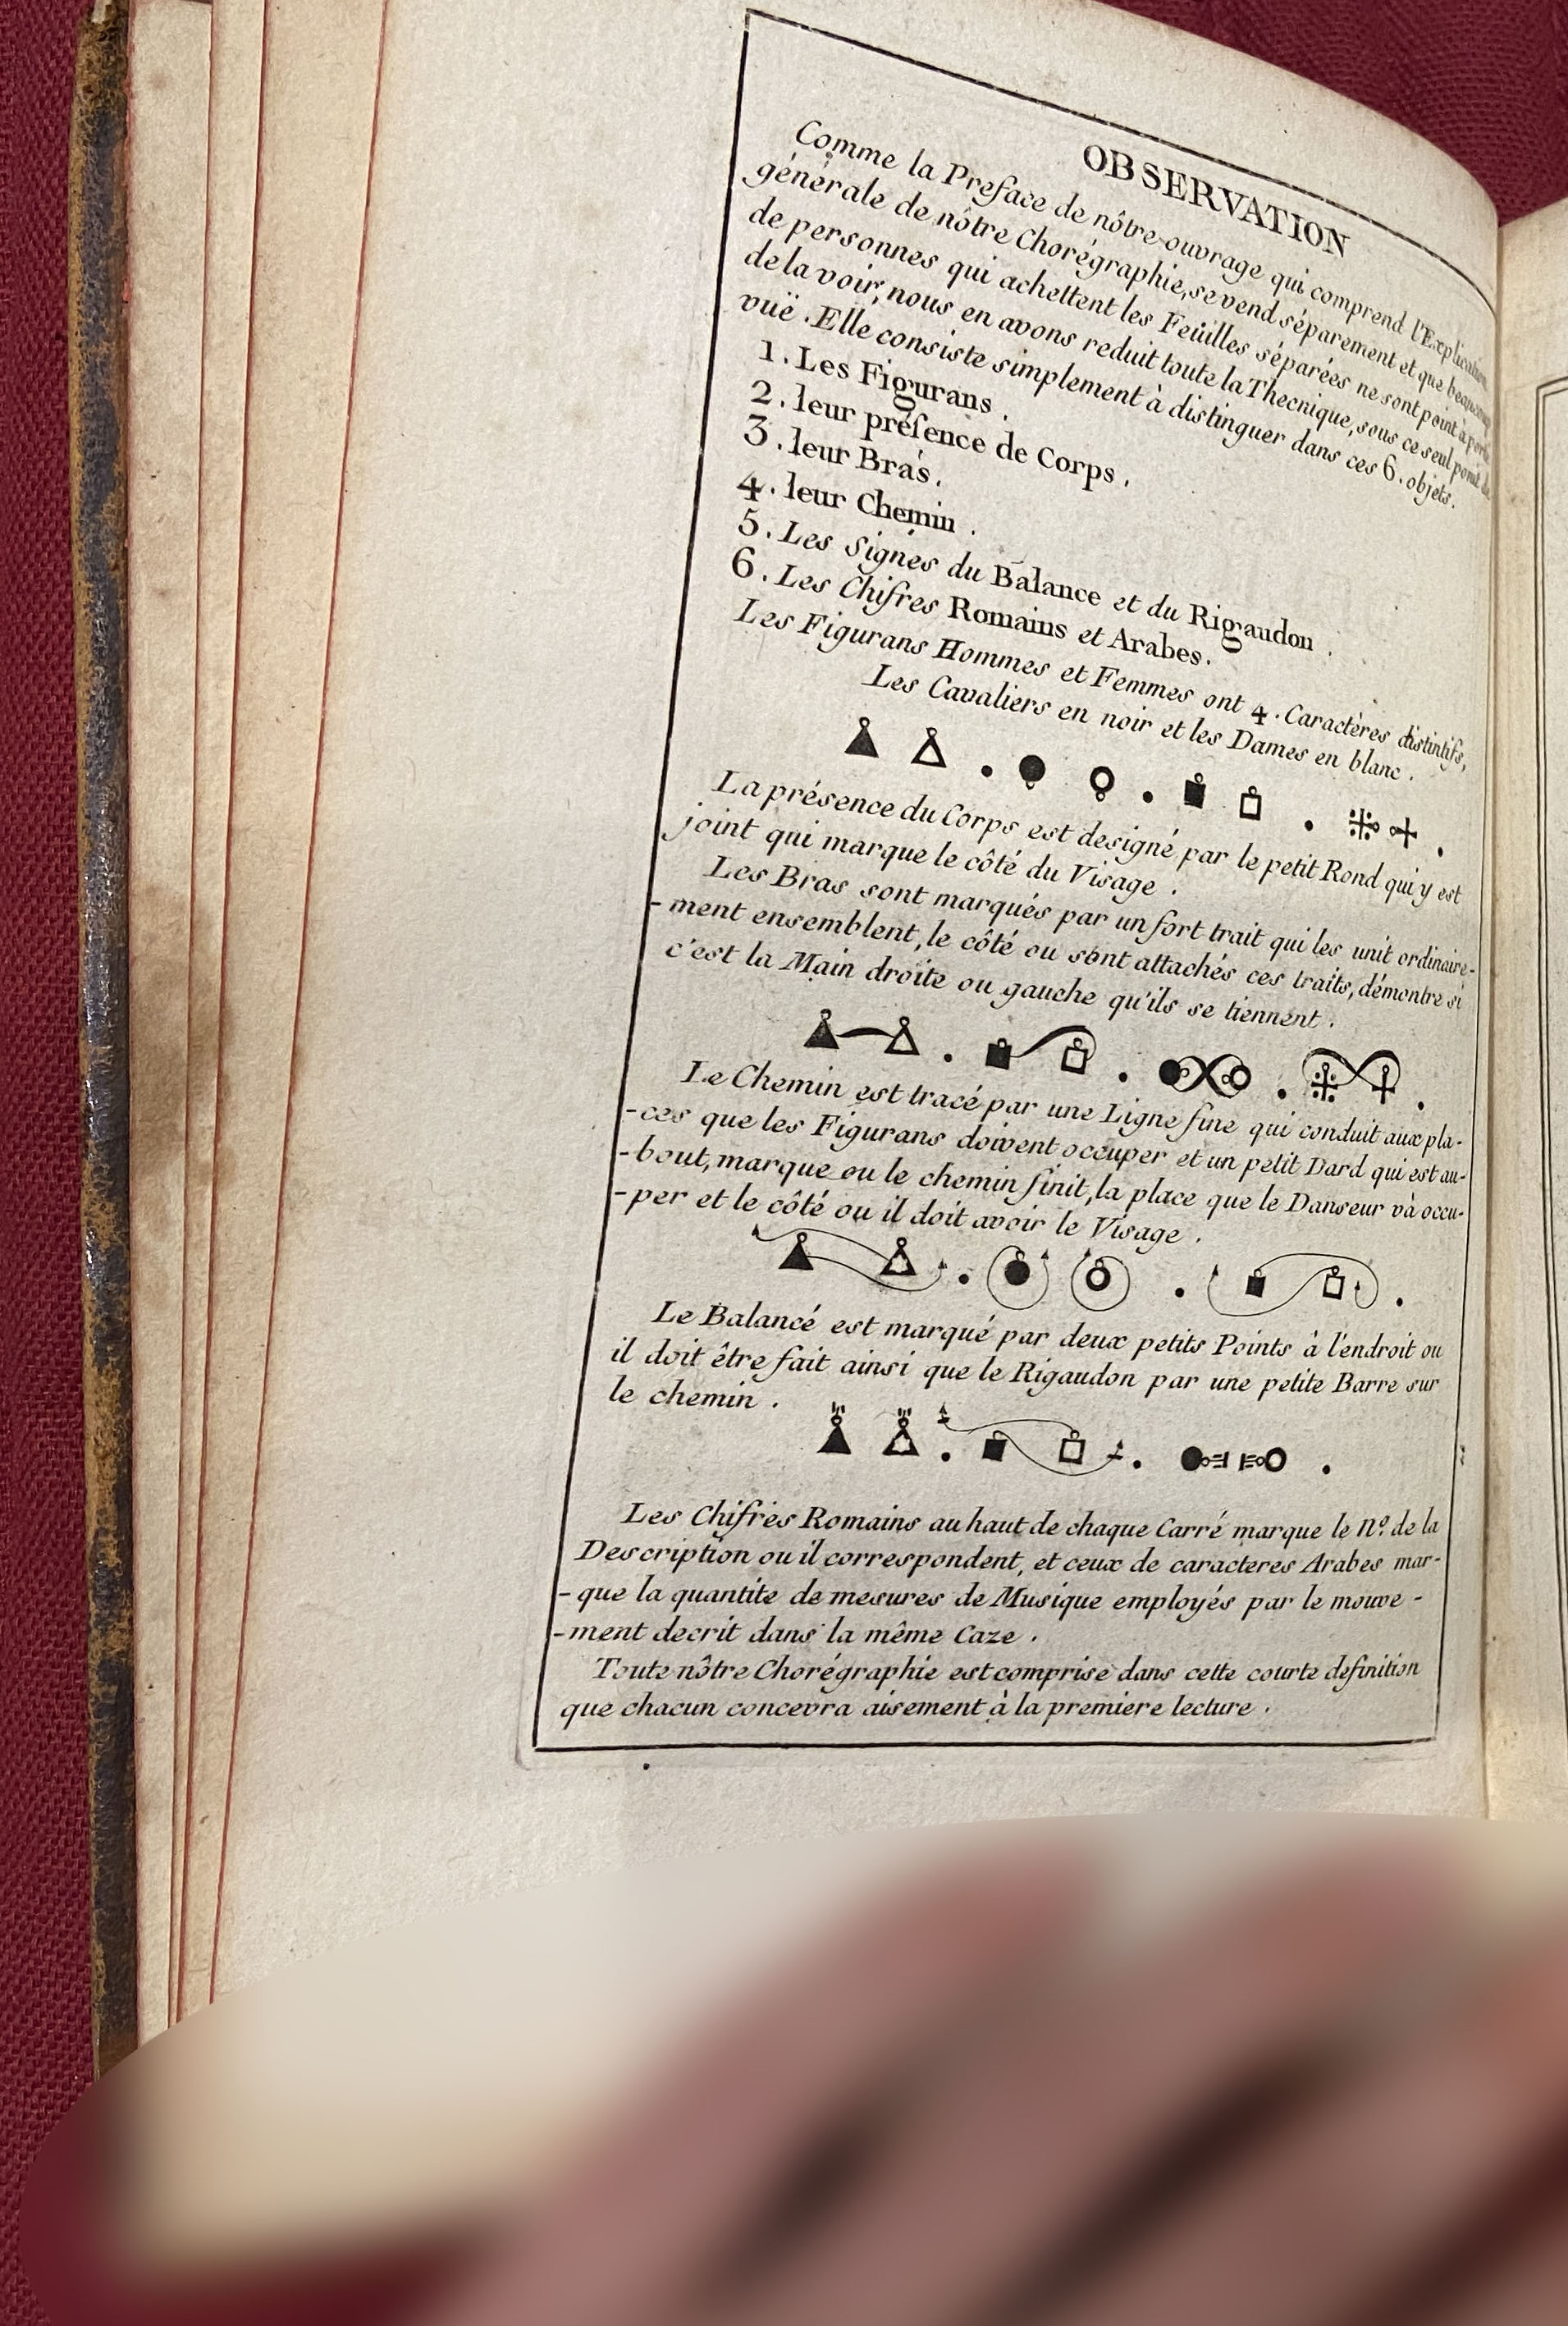 OBSERVATION
Comme la Preface de nôtre ouvrage qui comprend l'Explication
générale de nôtre Chorégraphie, se vend séparement et que beaucoup
de personnes qui achettent les Feüilles séparées ne sont point à portée
de la voir, nous en avons reduit toute la Thecnique, sous ce seul point de
vuë. Elle consiste simplement à distinguer dans ces 6. objets.
1. Les Figurans.
2. leur présence de Corps.
3. leur Bras.
4. leur Chemin.
5. Les Signes du Balance et du Rigaudon.
6. Les Chifres Romains et Arabes.
Les Figurans Hommes et Femmes ont 4. Caractères distintifs,
Les Cavaliers en noir et les Dames en blanc.
La présence du Corps est designé par le petit Rond qui y est
joint qui marque le côté du Visage.
Les Bras sont marqués par un fort trait qui les unit ordinaire-
-ment ensemblent, le côté ou sont attachés ces traits, démontre si
c'est la Main droite ou gauche qu'ils se tiennent.
Le Chemin est tracé par une Ligne fine qui conduit aux pla-
-ces que les Figurans doivent occuper et un petit Dard qui est au-
-bout, marque ou le chemin finit, la place que le Danseur và occu-
-per et le côté ou il doit avoir le Visage.
Le Balancé est marqué par deux petits Points à l'endroit ou
il doit être fait ainsi que le Rigaudon par une petite Barre sur
le chemin.
Les Chifres Romains au haut de chaque Carré marque le N.º de la
Description ou il correspondent, et ceux de caracteres Arabes mar-
-que la quantite de mesures de Musique employés par le mouve-
-ment decrit dans la même Caze.
Toute nôtre Chorégraphie est comprise dans cette courte definition
que chacun concevra aisement à la premiere lecture.